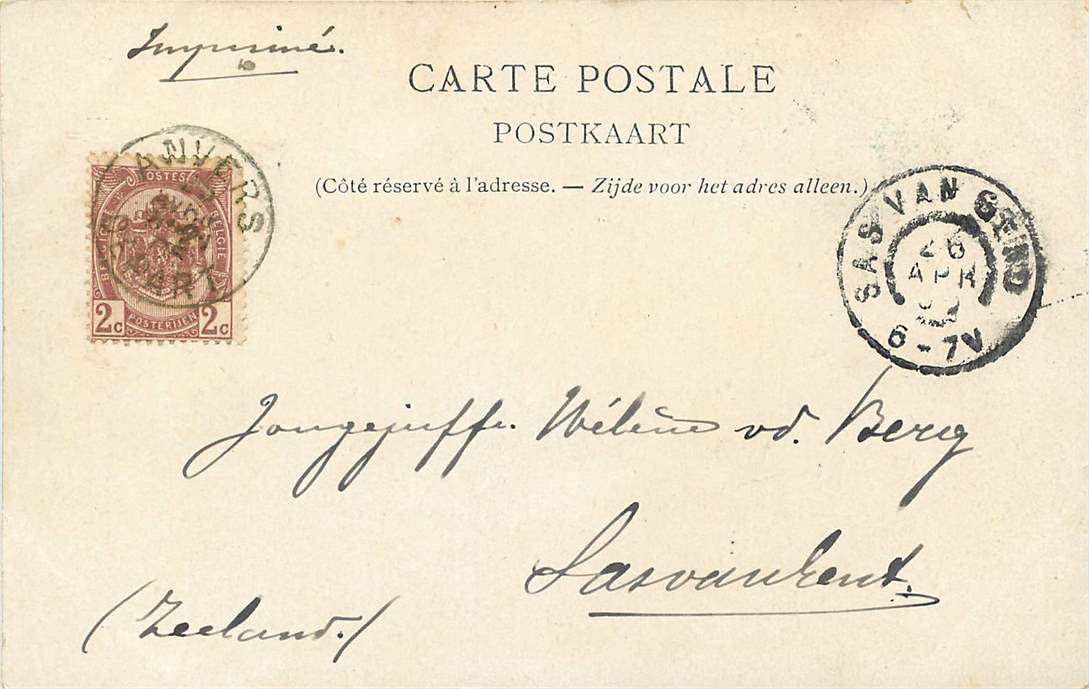 Imprimé.
CARTE POSTALE
POSTKAART
(Côté réservé à l'adresse. — Zijde voor het adres alleen.)
ANVERS
POSTES
BELGIQUE
BELGIE
2c 2c
POSTERIJEN
SAS VAN GEND
26
APR
6-7V
Jongejuffr. Hélène vd. Berg
Sasvanhent.
(Zeeland.)